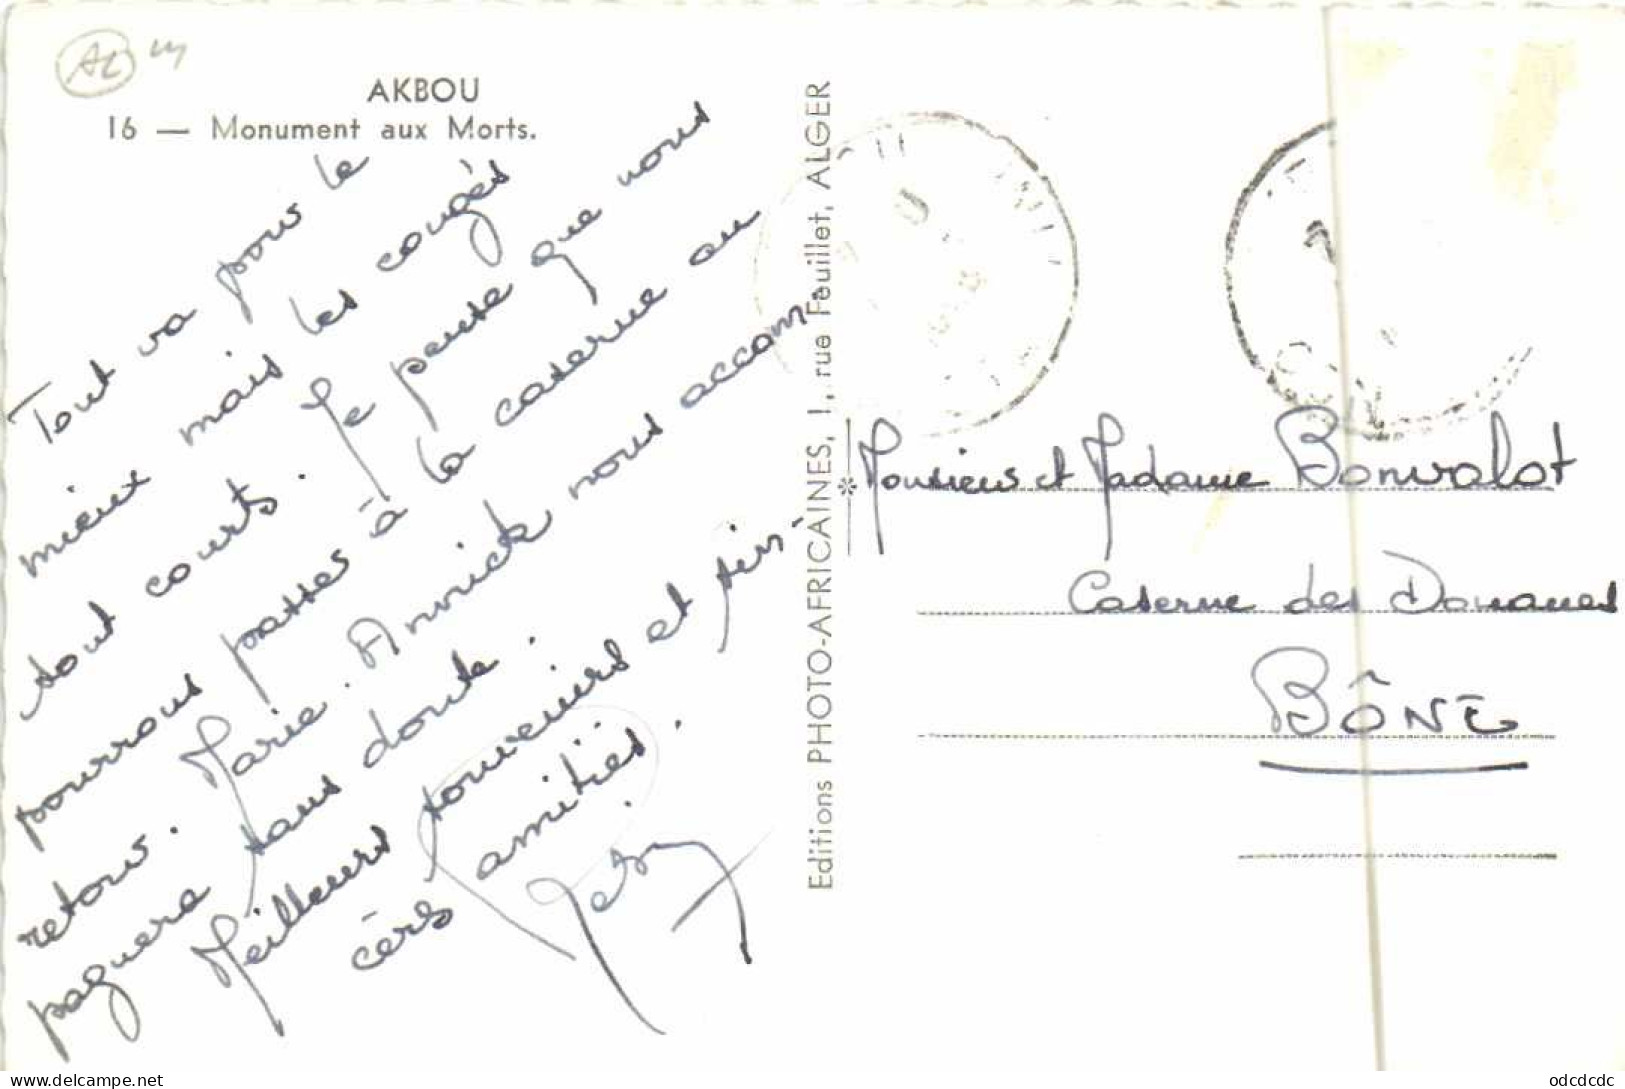 AL
AKBOU
16 — Monument aux Morts.
Tout va pour le
mieux mais les congés
sont courts. Je pense que nous
pourrons passer à la caserne au
retour. Marie. Annick nous accom-
pagnera sans doute.
Meilleurs souvenirs et sin-
cèrs amitiés.
Editions PHOTO-AFRICAINES, 1, rue Feuillet, ALGER
Monsieur et Madame Bonvalot
Caserne des Douanes
BÔNE
delcampe.net
odcdcdc